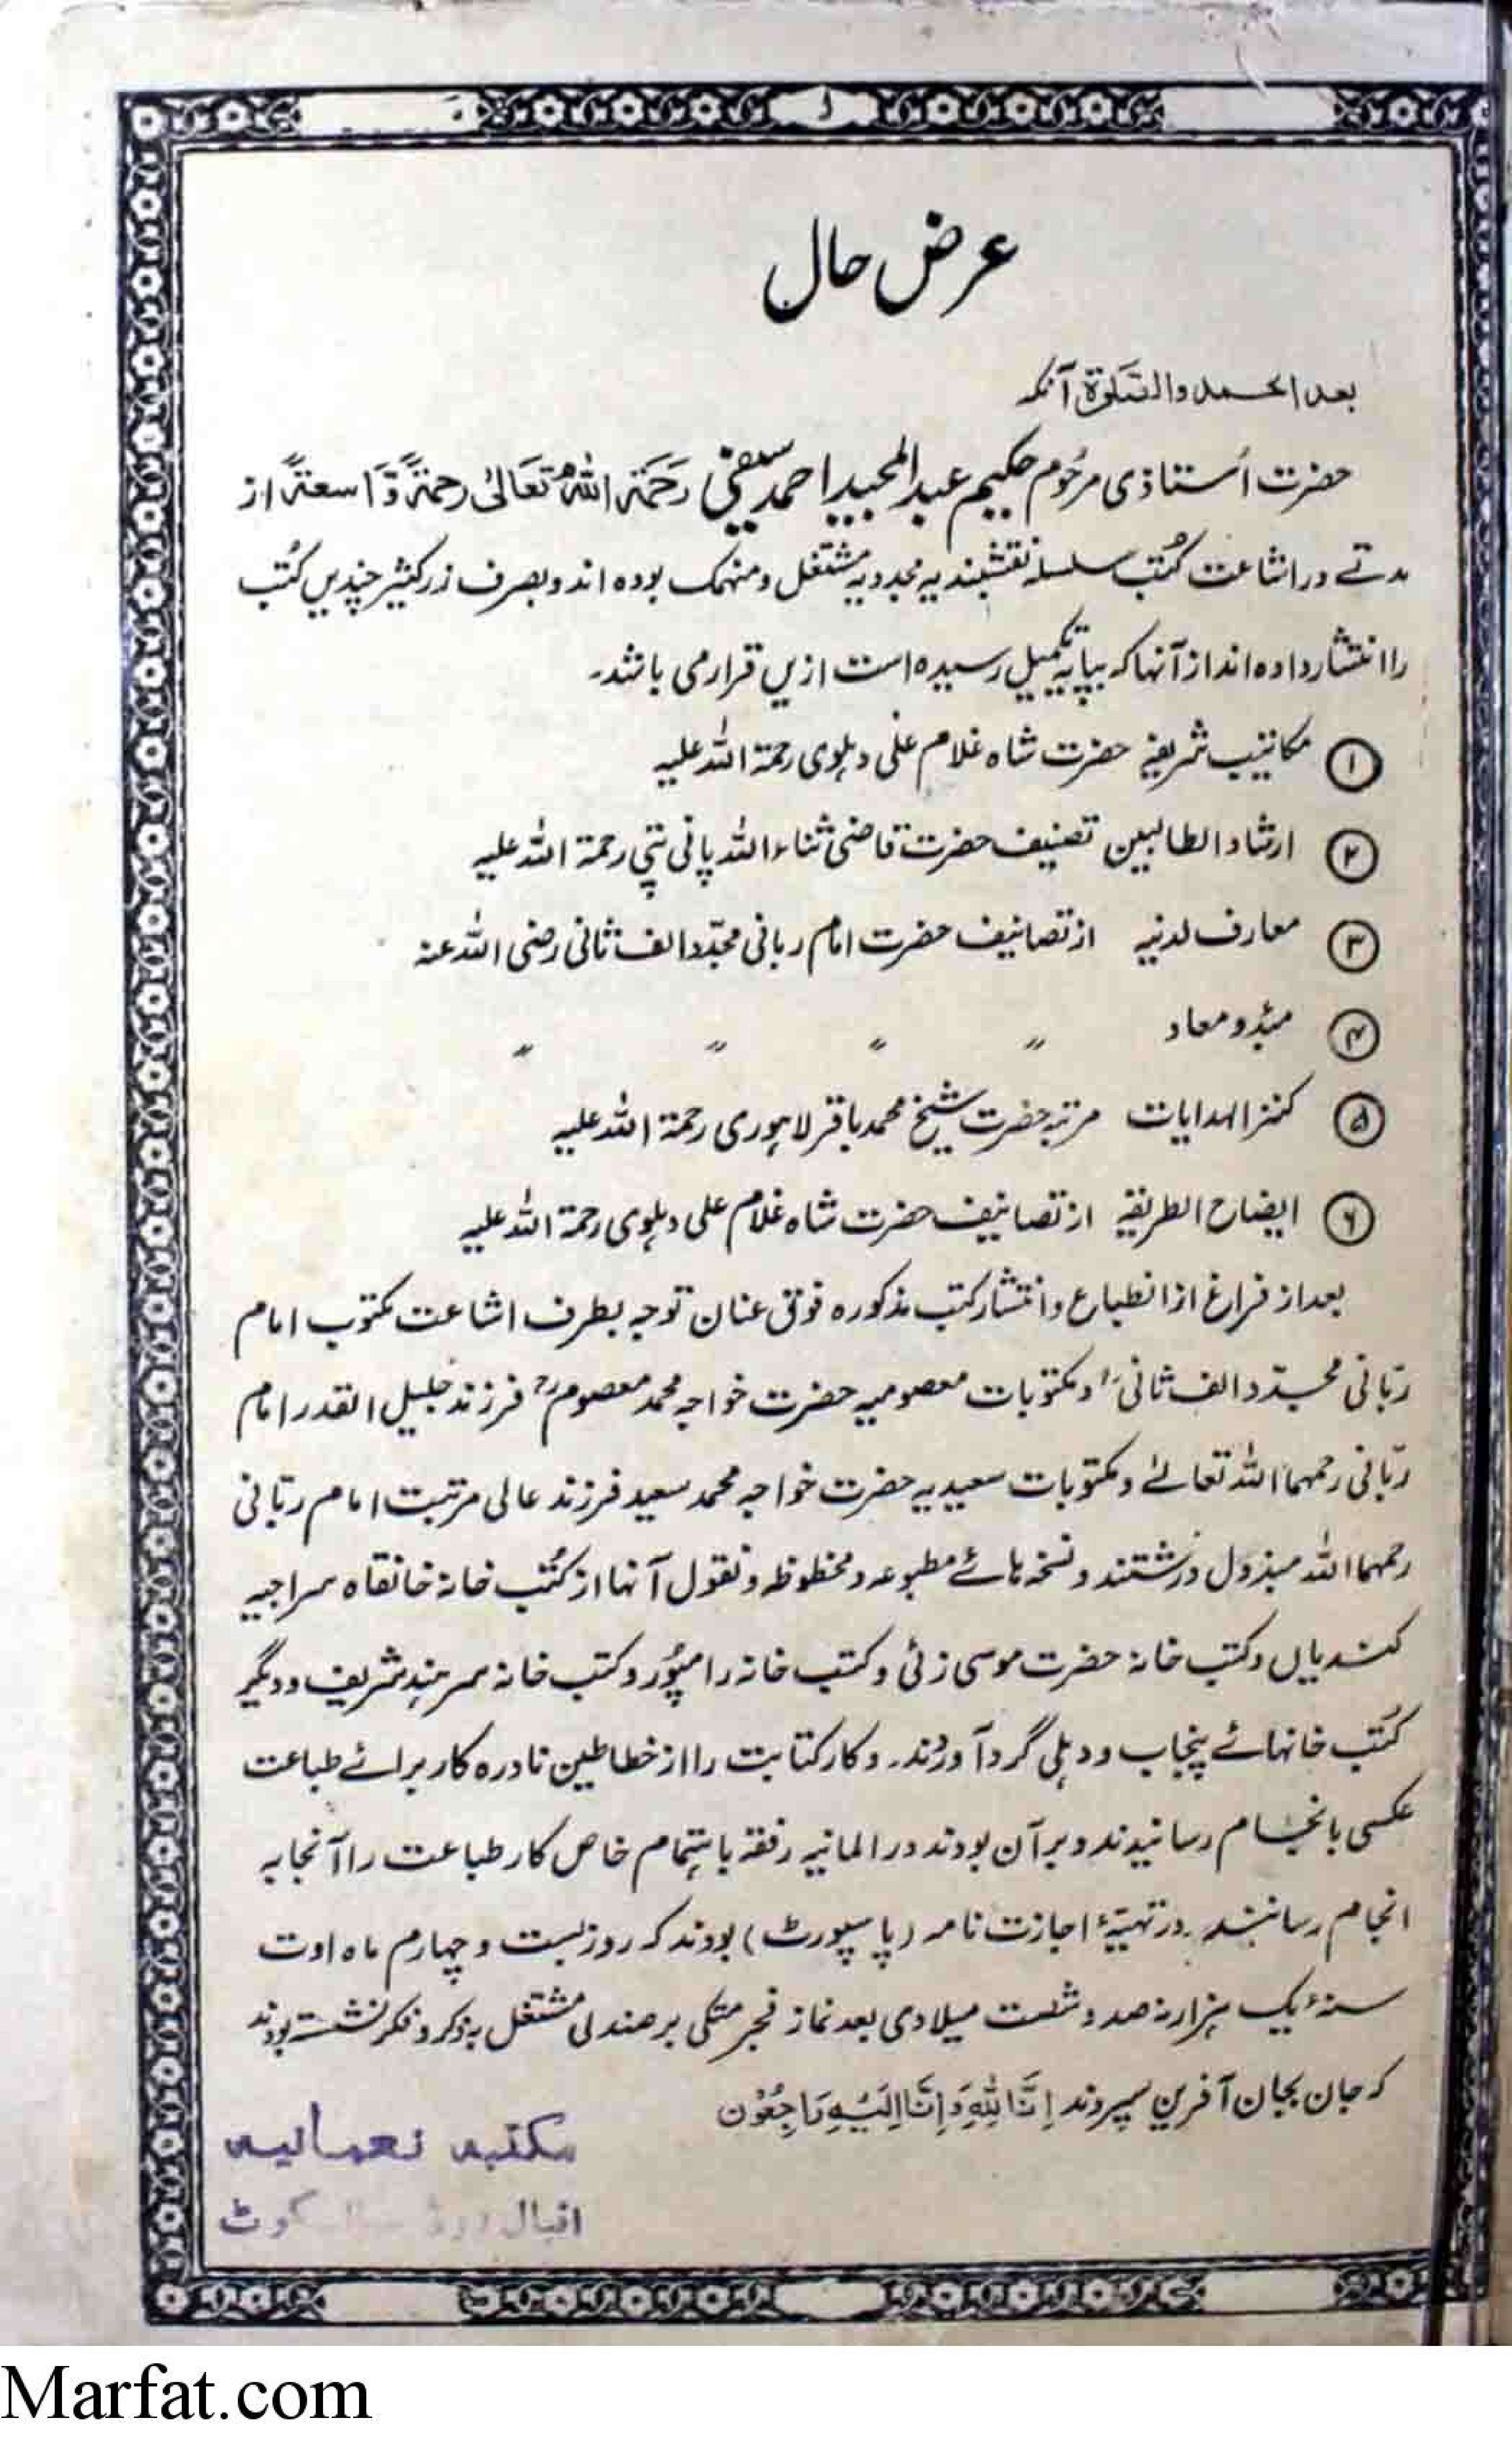 عرض حال
بعد الحمد والصلوٰة آنکہ
حضرت اُستاذی مرحُوم حکیم عبدالمجید احمد سیفی رَحمَۃ اللہُ تَعَالیٰ رحمۃً وَّاسعۃً از
مدتے در اشاعت کُتب سلسلہ نقشبندیہ مجددیہ مشتغل ومنہمک بودہ اند وبصرف زرکثیر چندیں کُتب
را انتشار دادہ اند از آنہا کہ بپایہ تکمیل رسیدہ است ازیں قرار می باشد۔
۱ مکاتیب شریفہ حضرت شاہ غلام علی دہلوی رحمۃ اللہ علیہ
۲ ارشاد الطالبین تصنیف حضرت قاضی ثناء اللہ پانی پتی رحمۃ اللہ علیہ
۳ معارف لدنیہ از تصانیف حضرت امام ربانی مجدّد الف ثانی رضی اللہ عنہ
۴ مبدٔ و معاد 〃 〃 〃 〃
۵ کنز الہدایات مرتبہ حضرت شیخ محمد باقر لاہوری رحمۃ اللہ علیہ
۶ ایضاح الطریقہ از تصانیف حضرت شاہ غلام علی دہلوی رحمۃ اللہ علیہ
بعد از فراغ از انطباع وانتشار کتب مذکورہ فوق عنان توجہ بطرف اشاعت مکتوب امام
ربّانی مجدّد الف ثانیؒ ومکتوبات معصومیہ حضرت خواجہ محمد معصومؒ فرزند جلیل القدر امام
ربّانی رحمہما اللہ تعالےٰ ومکتوبات سعیدیہ حضرت خواجہ محمد سعید فرزند عالی مرتبت امام ربّانی
رحمہما اللہ مبذول داشتند ونسخہ ہائے مطبوعہ ومخطوطہ ونقول آنہا از کُتب خانہ خانقاہ سراجیہ
کندیاں وکتب خانہ حضرت موسی زئی وکتب خانہ رامپُور وکتب خانہ سرہند شریف ودیگر
کُتب خانہائے پنجاب ودہلی گرد آوردند۔ وکار کتابت را از خطاطین نادرہ کار برائے طباعت
عکسی بانجام رسانیدند وبر آن بودند در المانیہ رفتہ باہتمام خاص کار طباعت را آنجا بہ
انجام رسانند۔ در تہیّۂ اجازت نامہ (پاسپورٹ) بودند کہ روز بست و چہارم ماہ اوت
سنۂ یک ہزار نہ صد و شصت میلادی بعد نماز فجر متکی بر صندلی مشتغل بہ ذکر و فکر نشستہ بودند
کہ جان بجان آفرین سپردند اِنَّا لِلّٰهِ وَاِنَّا اِلَیْهِ رَاجِعُوْن
مکتبہ نعمانیہ
اقبال روڈ سیالکوٹ
Marfat.com